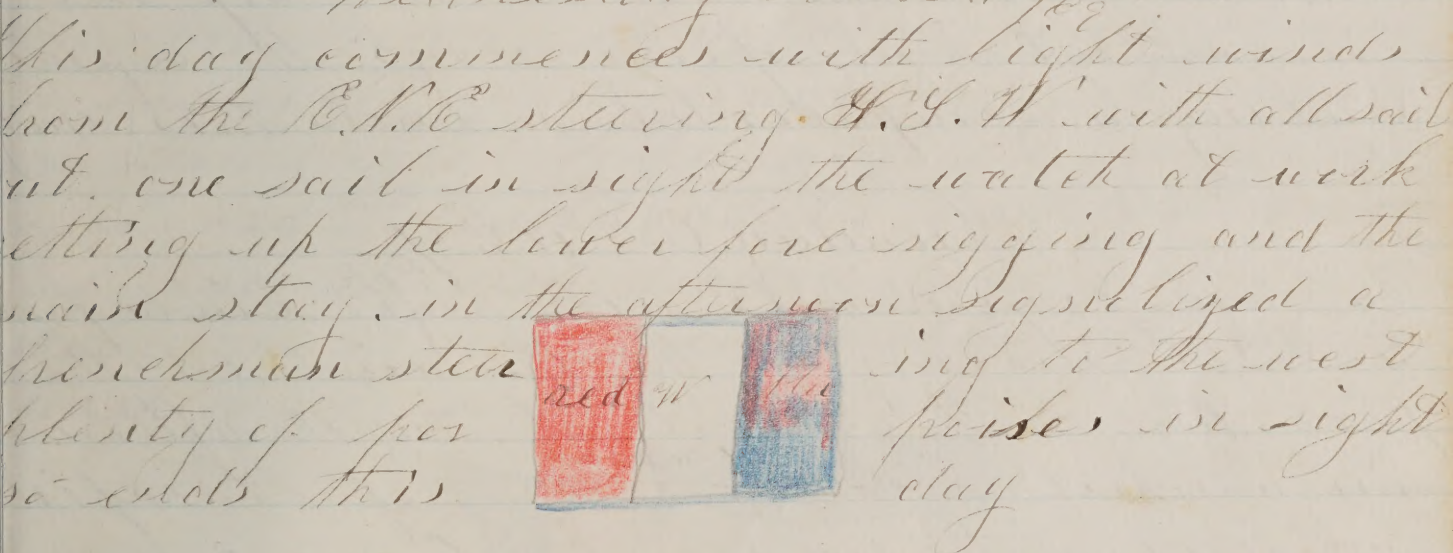 this day commences with light winds
from the E.N.E steering W.S.W with all sail
out. one sail in sight the watch at work
setting up the lower fore rigging and the
main stay. in the afternoon signalized a
frenchman steer ing to the west
red W blu
plenty of por poises in sight
so ends this day